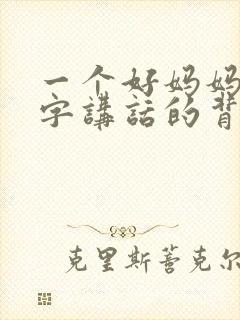 一个好妈妈
字講話的背
克里斯蒈克尔